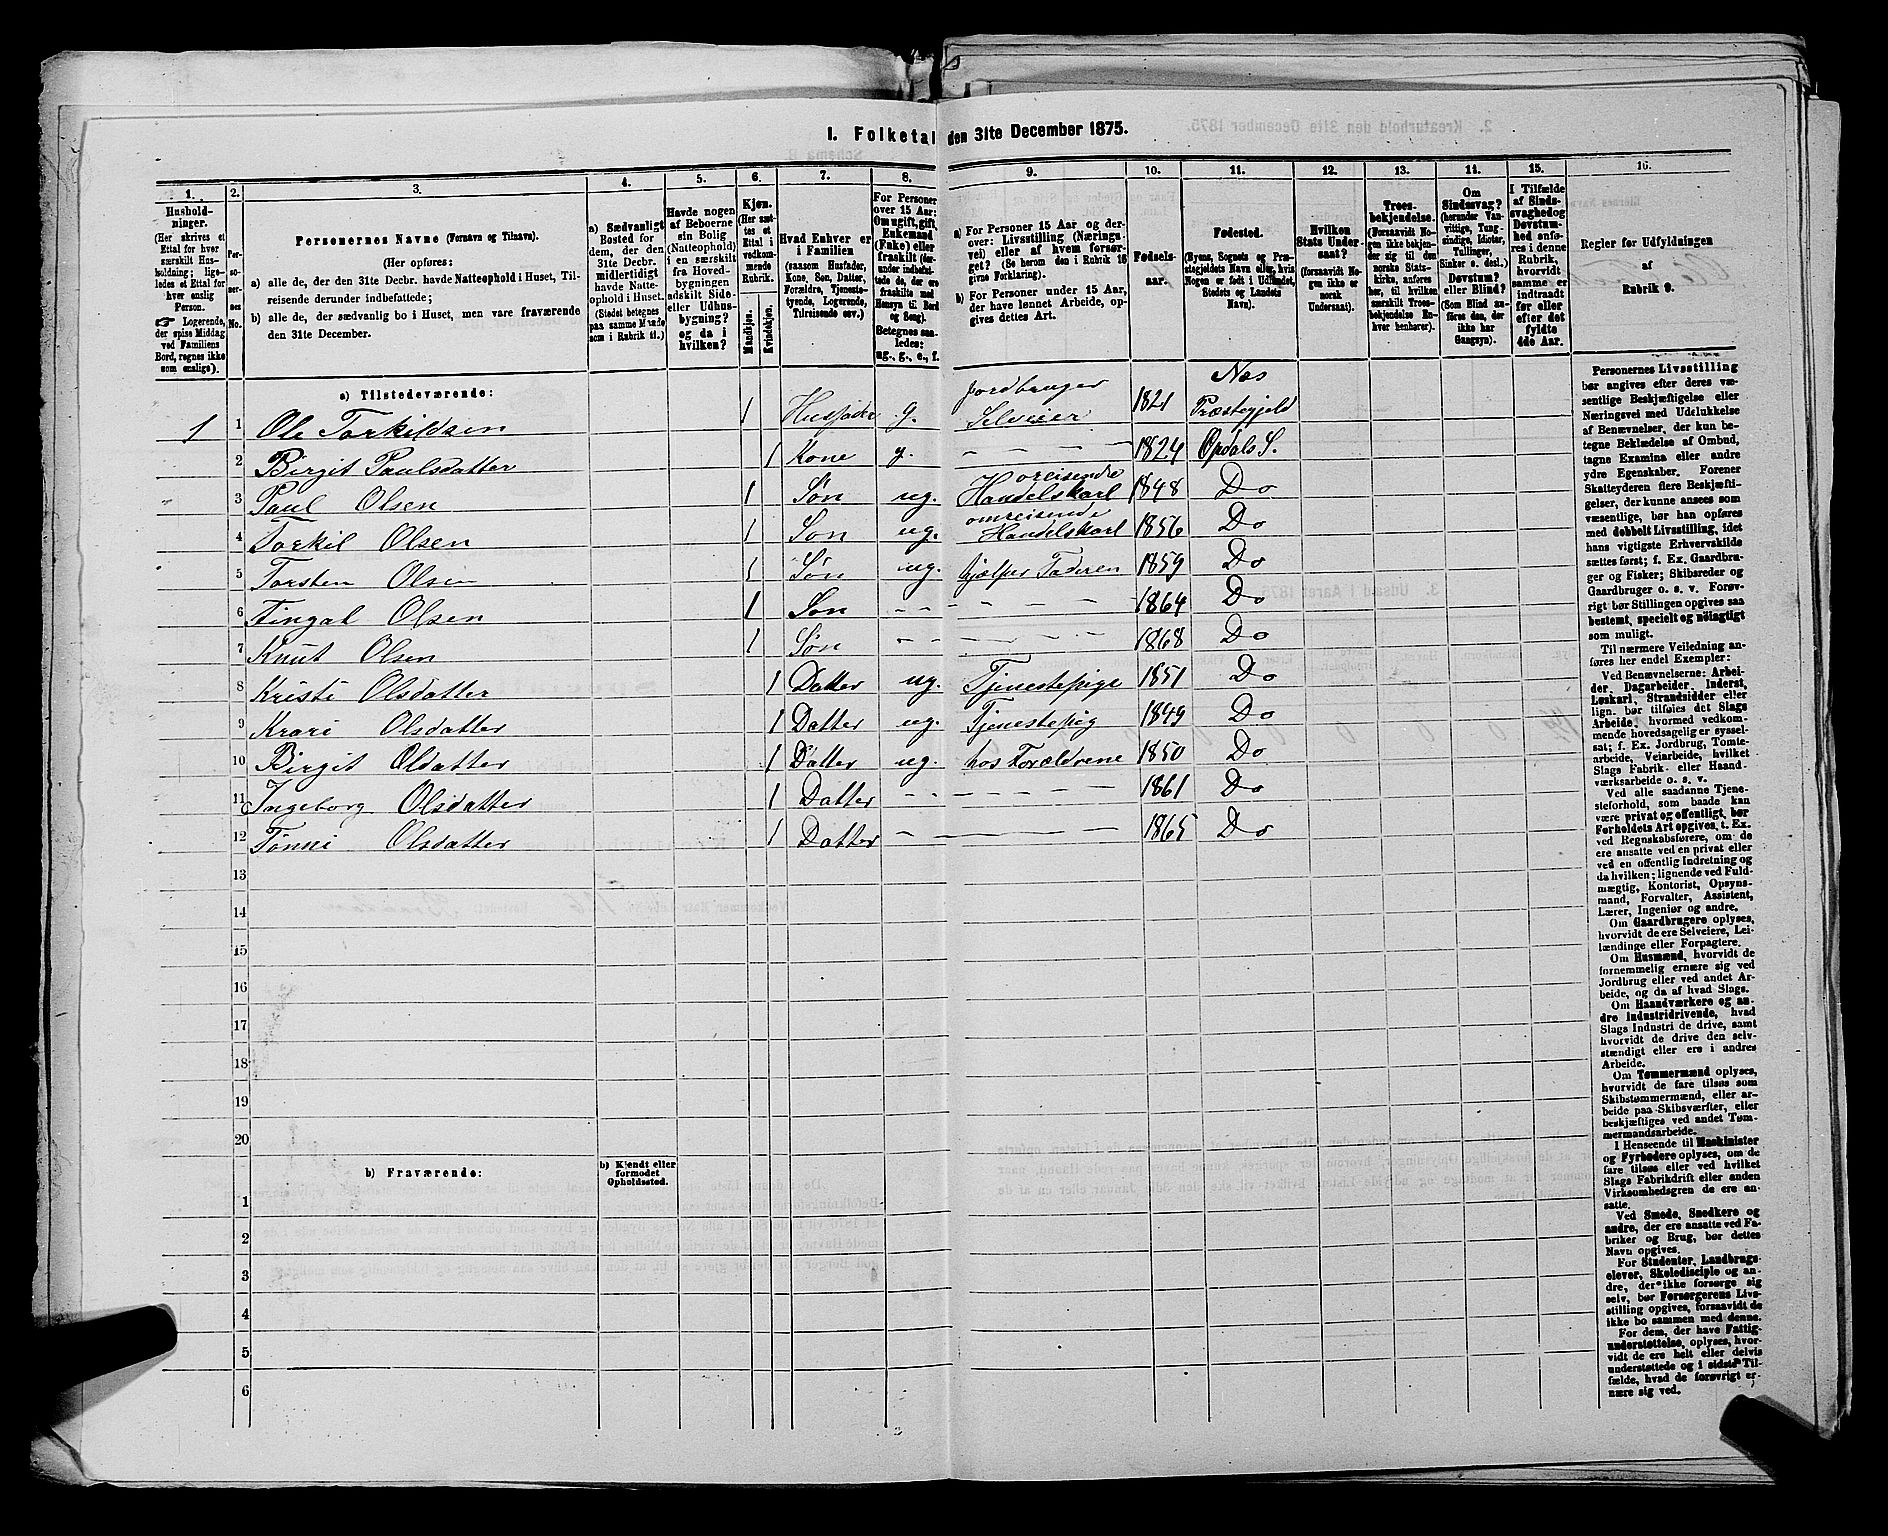 1. Folketal den 31te December 1875.
1. 2. 3. 4. 5. 6. 7. 8. 9. 10. 11. 12. 13. 14. 15. 16.
Hushold-
ninger.
(Her skrives et
Ettal for hver
særskilt Hus-
holdning; lige-
ledes et Ettal for
hver enslig
Person.
☞ Logerende,
der spise Middag
ved Familiens
Bord, regnes ikke
som enslige).
Personernes No.
Personernes Navne (Fornavn og Tilnavn).
(Her opføres:
a) alle de, der den 31te Decbr. havde Natteophold i Huset, Til-
reisende derunder indbefattede;
b) alle de, der sædvanlig bo i Huset, men vare fraværende
den 31te December.
a) Sædvanligt
Bosted for
dem, der den
31te Decbr.
midlertidigt
havde Natte-
ophold i Huset.
(Stedet betegnes
paa samme Maade
som i Rubrik 11.)
Havde nogen
af Beboerne
sin Bolig
(Natteophold)
i en særskilt
fra Hoved-
bygningen
adskilt Side-
eller Udhus-
bygning?
og da i
hvilken?
Kjøn.
(Her sæt-
tes et
Ettal i
vedkom-
mende
Rubrik.
Mandkjøn.
Kvindekjøn.
Hvad Enhver er
i Familien
(saasom Husfader,
Kone, Søn, Datter,
Forældre, Tjeneste-
tyende, Logerende,
Tilreisende osv.)
For Personer
over 15 Aar:
Om ugift, gift,
Enkemand
(Enke) eller
fraskilt (der-
under indbefat-
tede de, der ere
fraskilte med
Hensyn til Bord
og Seng).
Betegnes saa-
ledes:
ug., g., e., f.
a) For Personer 15 Aar og der-
over: Livsstilling (Nærings-
vei) eller af hvem forsør-
get? (Se herom den i Rubrik 16
givne Forklaring).
b) For Personer under 15 Aar,
der have lønnet Arbeide, op-
gives dettes Art.
Fødsels-
aar.
Fødested.
(Byens, Sognets og Præ-
stegjeldets Navn eller, hvis
Nogen er født i Udlandet,
Stedets og Landets
Navn).
Hvilken
Stats Under-
saat?
(forsaavidt No-
gen ikke er
norsk
Undersaat).
Troes-
bekjendelse.
(Forsaavidt No-
gen ikke bekjen-
der sig til den
norske Stats-
kirke, anføres
her, til hvilken
særskilt Troes-
bekjendelse En-
hver henhører).
Om
Sindssvag?
(herunder Van-
vittige, Tung-
sindige, Idioter,
Tullinger,
Sinker o. desl.)
Døvstum?
eller Blind?
(Som Blind an-
føres den, der
ikke har
Gangsyn).
I Tilfælde
af Sinds-
svaghed og
Døvstum-
hed anfø-
res i denne
Rubrik,
hvorvidt
samme er
indtraadt
før eller
efter det
fyldte
4de Aar.
Regler for Udfyldningen
af
Rubrik 9.
a) Tilstedeværende:
1 1 Ole Torkildsen 1 Husfader g. Jordbruger Selveier 1821 Næs Præstegjeld
2 Birgit Paulsdatter 1 Kone g. - - - 1824 Opdals S.
3 Paul Olsen 1 Søn ug. Handelskarl 1848 Do
4 Torkil Olsen 1 Son ug. omreisende Handelskarl 1856 Do
5 Torsten Olsen 1 Søn ug. hjælper Faderen 1859 Do
6 Olsen 1 Son - - - - - - 1864 Do
7 Knut Olsen 1 Søn - - - - - - 1868 Do
8 Kristi Olsdatter 1 Datter ug. Tjenestepige 1851 Do
9 Olsdatter 1 Datter ug. Tjenestepig 1849 Do
10 Birgit Oldatter 1 Datter ug. hos Forældrene 1850 Do
11 Ingeborg Olsdatter 1 Datter - - - - - - 1861 Do
12 Tønni Olsdatter 1 Datter - - - - - 1865 Do
13
14
15
16
17
18
19
20
b) Fraværende:
b) Kjendt eller
formodet
Opholdssted.
1
2
3
4
5
6
Personernes Livsstilling
bør angives efter deres væ-
sentlige Beskjæftigelse eller
Næringsvei med Udelukkelse
af Benævnelser, der kun be-
tegne Beklædelse af Ombud,
tagne Examina eller andre
ydre Egenskaber. Forener
Skatteyderen flere Beskjæfti-
gelser, der kunne ansees som
væsentlige, bør han opføres
med dobbelt Livsstilling, idet
hans vigtigste Erhvervskilde
sættes først; f. Ex. Gaardbru-
ger og Fisker; Skibsreder og
Gaardbruger o. s. v. Forøv-
rigt bør Stillingen opgives saa
bestemt, specielt og nöiagtigt
som muligt.
Til nærmere Veiledning an-
føres her endel Exempler:
Ved Benævnelserne: Arbei-
der, Dagarbeider, Inderst,
Løskarl, Strandsidder eller
lign. bør tilføies det Slags
Arbeide, hvormed vedkom-
mende hovedsagelig er syssel-
sat; f. Ex. Jordbrug, Tomte-
arbeide, Veiarbeide, hvilket
Slags Fabrik- eller Haand-
værksarbeide o. s. v.
Ved alle saadanne Tjene-
steforhold, som baade kan
være privat og offentlig, bør
Forholdets Art opgives, t. Ex.
ved Regnskabsførere, om de
ere ansatte ved en privat eller
ved en offentlig Indretning og
da hvilken; lignende ved Fuld-
mægtig, Kontorist, Opsyns-
mand, Forvalter, Assistent,
Lærer, Ingeniør og andre.
Om Gaardbrugere oplyses,
hvorvidt de ere Selveiere, Lei-
lændinge eller Forpagtere.
Om Husmænd, hvorvidt de
fornemmelig ernære sig ved
Jordbrug eller ved andet Ar-
beide, og da af hvad Slags.
Om Haandværkere og an-
dre industridrivende, hvad
Slags Industri de drive, samt
hvorvidt de drive den selv-
stændigt eller ere i andres
Arbeide.
Om Tømmermænd oplyses,
hvorvidt de fare tilsøs som
Skibstømmermænd, eller ar-
beide paa Skibsværfter, eller
beskjæftiges ved andet Tøm-
mermandsarbeide.
I Henseende til Maskinister
og Fyrbødere oplyses, om de
fare tilsøs eller ved hvilket
Slags Fabrikdrift eller anden
Virksombedsgren de ere an-
satte.
Ved Smede, Snedkere og
andre, der ere ansatte ved Fa-
briker og Brug, bør dettes
Navn opgives.
For Studenter, Landbrugs-
elever, Skoledisciple og an-
dre, der ikke forsørge sig
selv, bør Forsørgerens Livs-
stilling opgives, forsaavidt de
ikke bo sammen med denne.
For dem, der have Fattig-
understøttelse, oplyses, hvor-
vidt de ere helt eller delvis
understøttede og i sidste Til-
fælde, hvad de forøvrigt er-
nære sig ved.